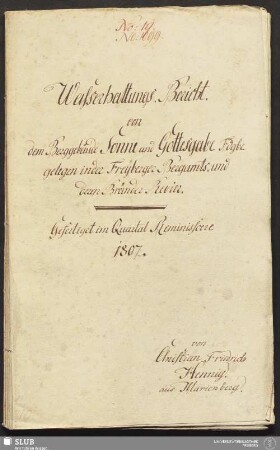 Wasserhaltungs-Bericht.
von
dem Berggebäude Sonne und Gottesgabe Fdgbe
gelegen in der Freyberger Bergamts und
deren Bränder Revier.
Gefertiget im Quartal Reminiscere
1807.
von
Christian Friedrich
Hennig.
aus Marienberg.
SLUB